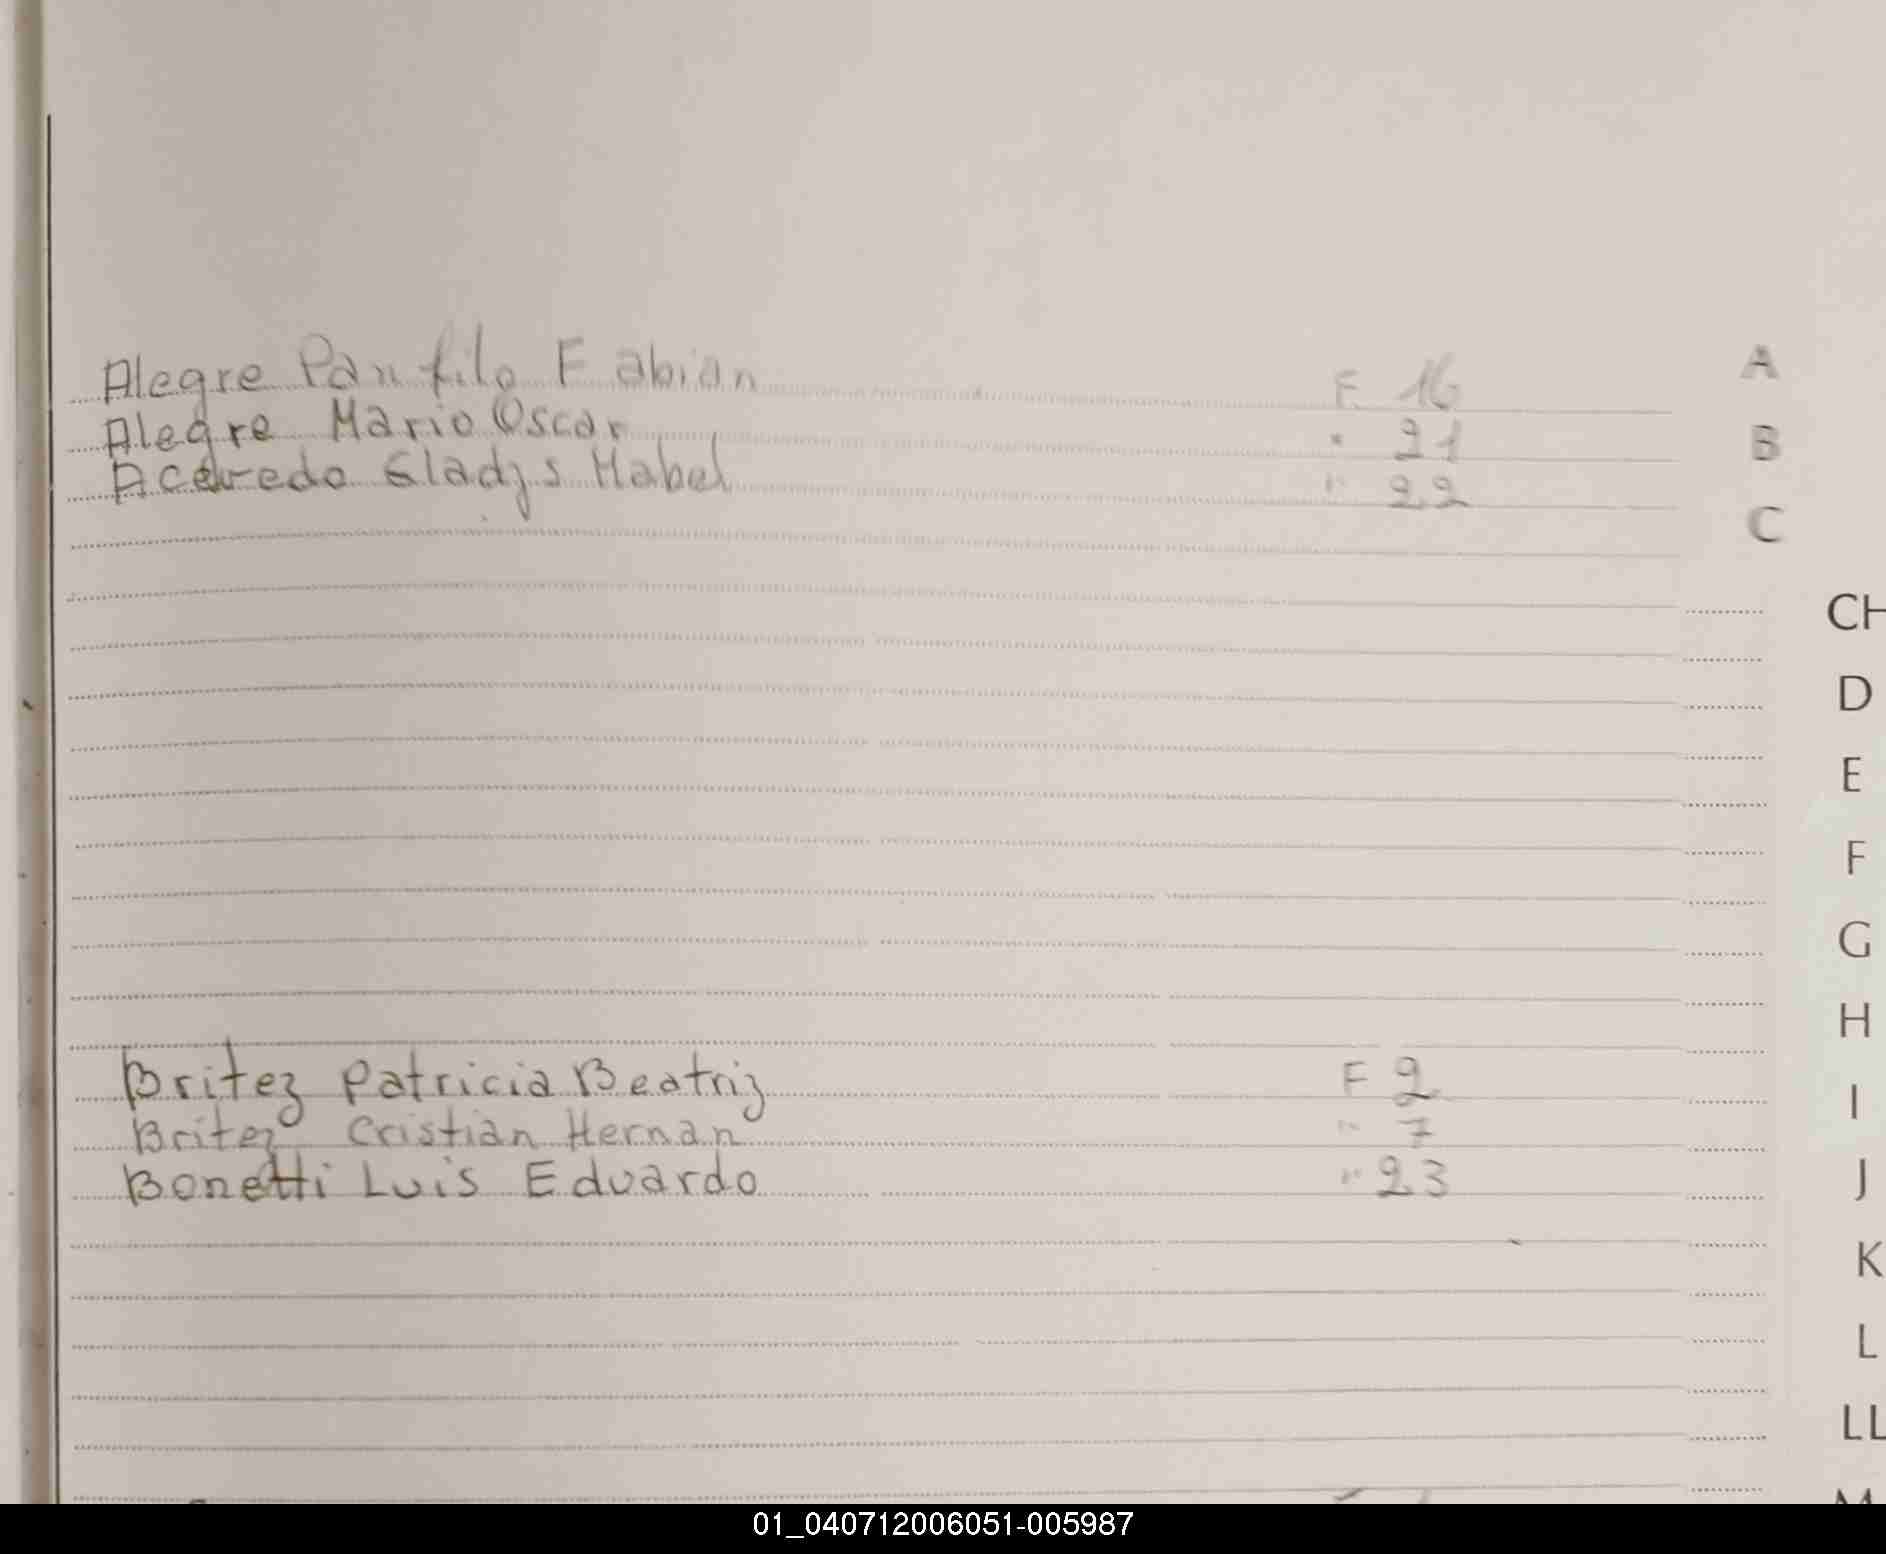 Alegre Panfilo Fabian F 16 A
Alegre Mario Oscar " 21 B
Acevedo Gladys Mabel " 22
C
CH
D
E
F
G
H
Britez Patricia Beatriz F 2
I
Britez Cristian Hernan " 7
Bonetti Luis Eduardo " 23 J
K
L
LL
01_040712006051-005987